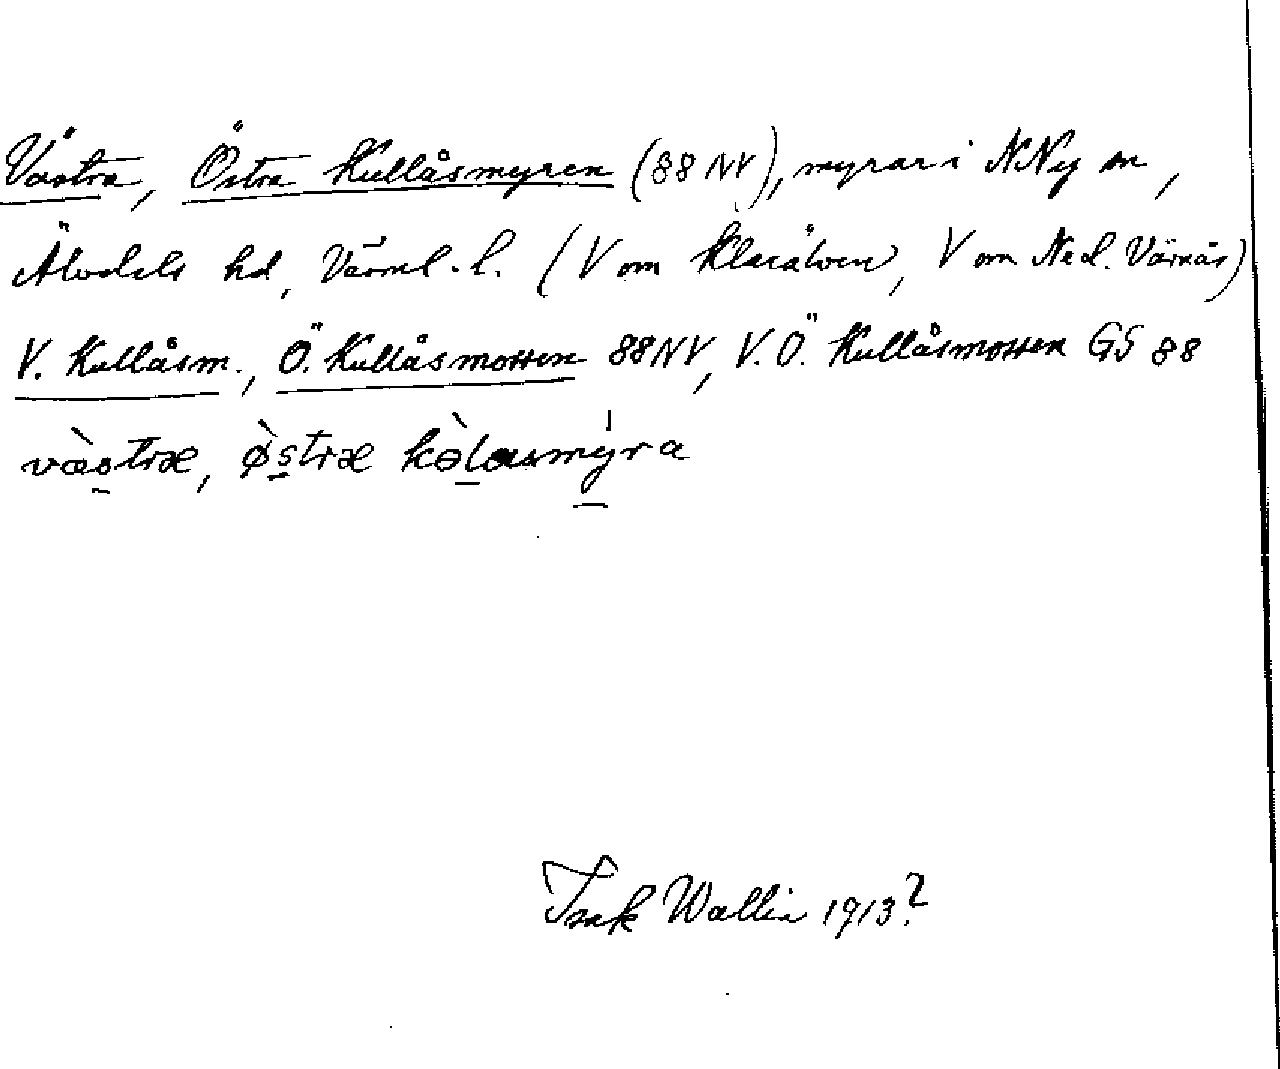 Västra, Östra Kullåsmyren (88 NV), myrar i NNy sn,
Älvdals hd, Värml. l. (V om Klarälven, V om Ned. Värnäs)
V. Kullåsm., Ö. Kullåsmossen 88NV, V. Ö. Kullåsmossen GS 88
væ̀stræ, ø̀stræ kòlasmýra
Isak Wallin 1913?